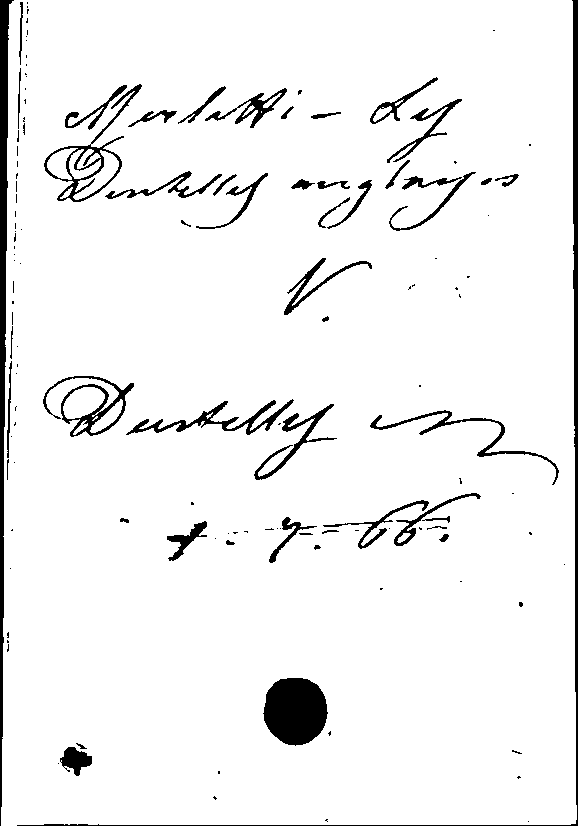 Merletti - Les
Dentelles anglaises
V.
Dentelles
7. 66.